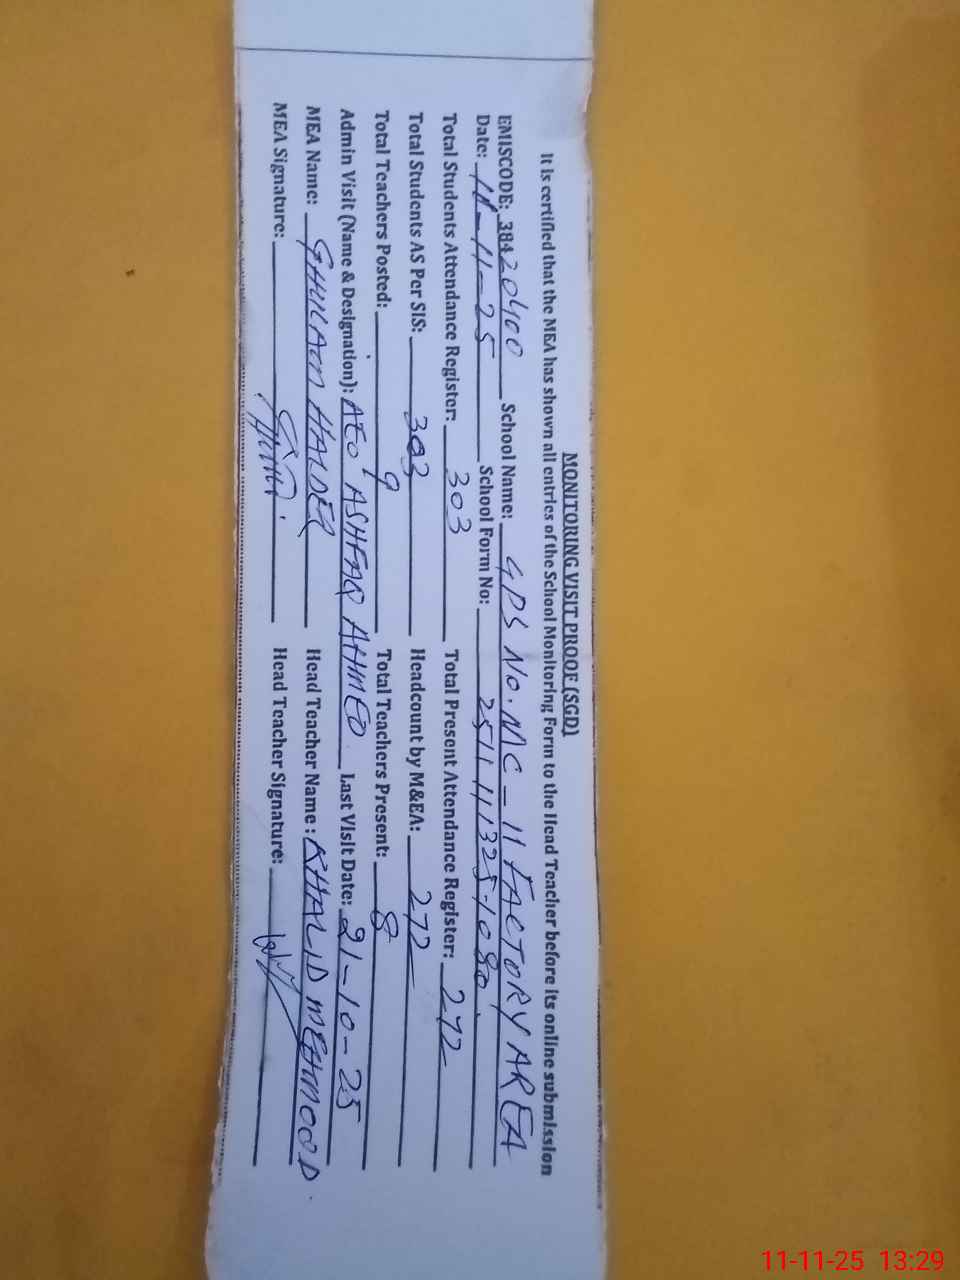 MONITORING VISIT PROOF (SGD)
It is certified that the MEA has shown all entries of the School Monitoring Form to the Head Teacher before its online submission
EMISCODE: 38420400 School Name: GPS NO. MC - 11 FACTORY AREA
Date: 11-11-25 School Form No: 251111325-1080.
Total Students Attendance Register: 303 Total Present Attendance Register: 272
Total Students AS Per SIS: 303 Headcount by M&EA: 272
Total Teachers Posted: 9 Total Teachers Present: 8
Admin Visit (Name & Designation): AEO ASHFAQ AHMED Last Visit Date: 21-10-25
MEA Name: GHULAM HAIDER Head Teacher Name: KHALID MEHMOOD.
MEA Signature: Head Teacher Signature:
11-11-25 13:29